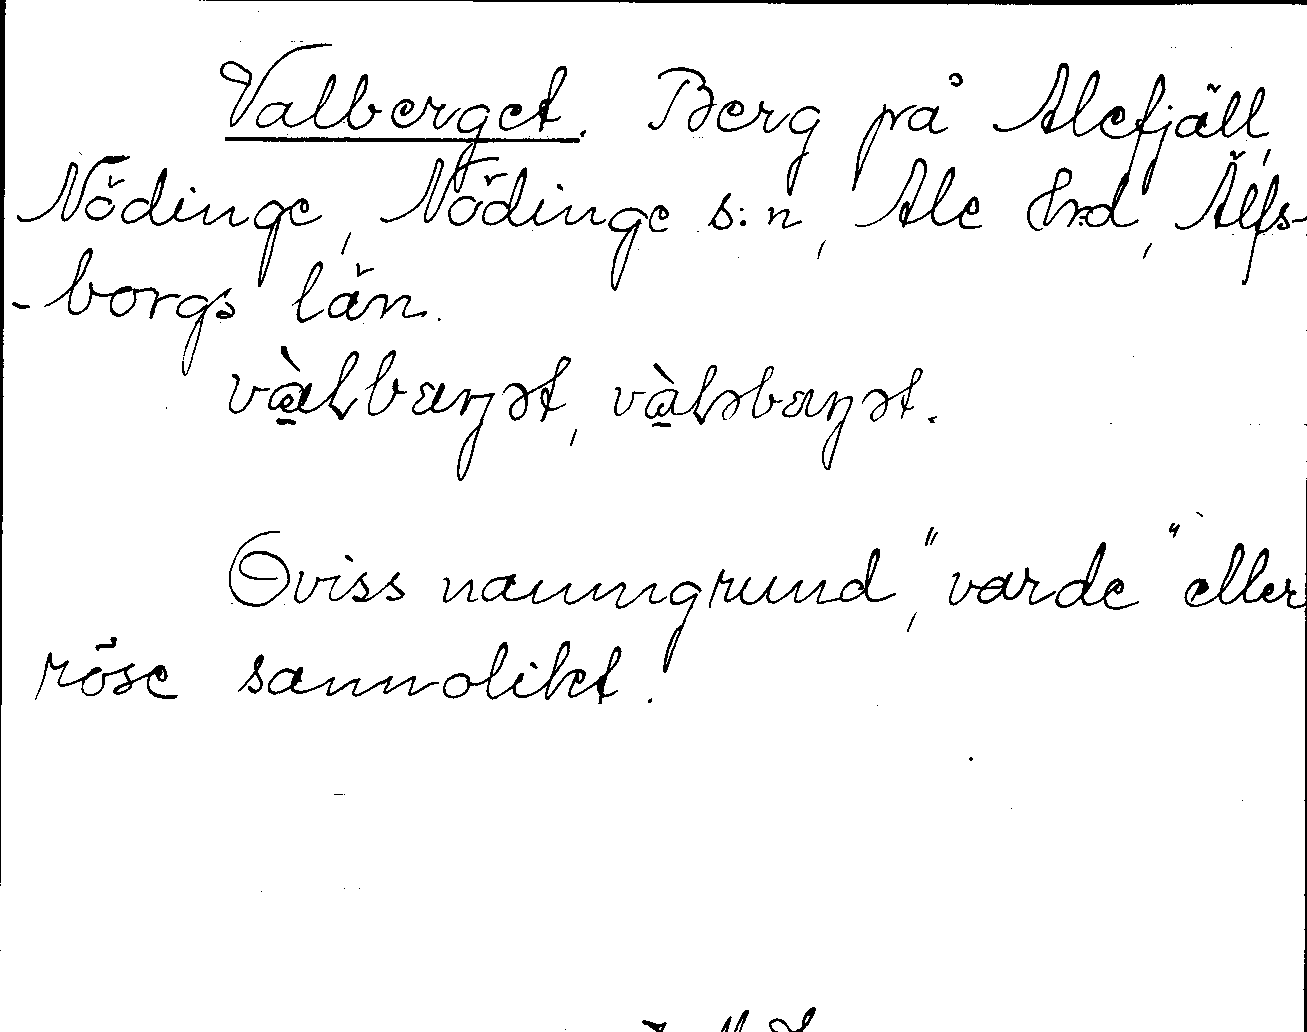 Valberget. Berg på Alefjäll,
Nödinge, Nödinge s:n, Ale hrd, Älfs-
-borgs län.
Oviss namngrund, "varde" eller
röse sannolikt.